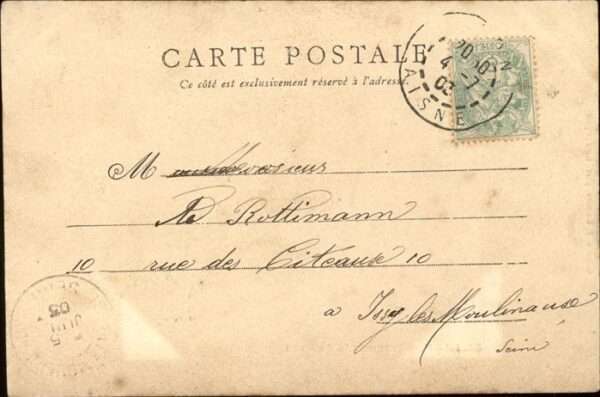 CARTE POSTALE
Ce côté est exclusivement réservé à l'adresse
20 50
4 -7
03
AISNE
M Monsieur
Rottimann
10 rue des Citeause 10
a Issy les Moulinause
Seine
JUIL
03